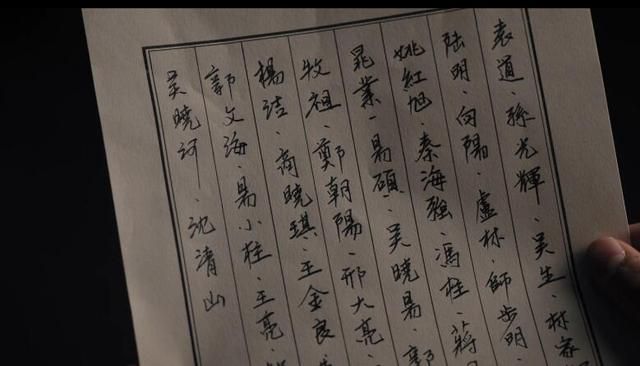 袁道、孫光輝、吴生、林家
陆明、向陽、盧林、師步明、
姚紅旭、秦海強、馮柱、蔣
晁業、易碩、吴曉易、郭
牧祖、鄭朝陽、邢大亮、
楊洁、商曉琪、王金良、
郭文海、易小柱、王亮、
吴曉河、沈清山